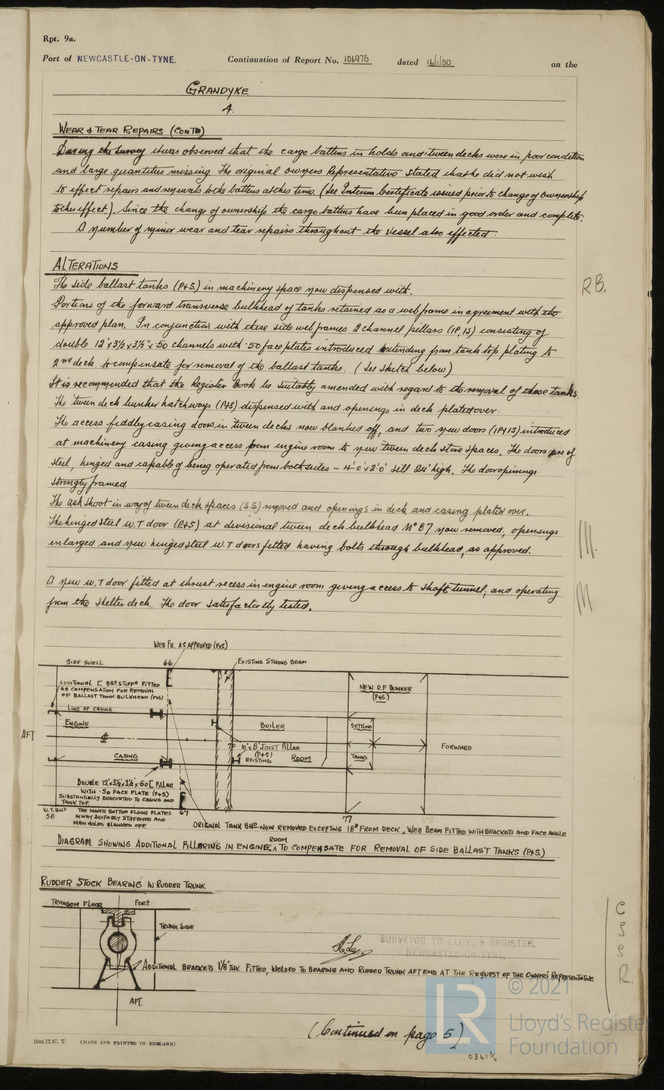 Rpt. 9a.
Port of NEWCASTLE-ON-TYNE. Continuation of Report No. 106975 dated 16/1/50 on the
GRANDYKE
4.
WEAR & TEAR REPAIRS (CONTD)
During the survey it was observed that the cargo battens in holds and tween decks were in poor condition
and large quantities missing. The original owners Representative stated that he did not wish
to effect repairs and renewals to the battens at this time (See Interim Certificate issued prior to change of ownership
to this effect). Since the change of ownership the cargo battens have been placed in good order and complete.
A number of minor wear and tear repairs throughout the vessel also effected.
ALTERATIONS
The side ballast tanks (P&S.) in machinery space now dispensed with.
Portions of the forward transverse bulkhead of tanks retained as a web frame in agreement with the
approved plan. In conjunction with these side web frames 2 channel pillars (1P, 1S) consisting of
double 12"x3½x3½"x.50 channels with .50 face plates introduced extending from tank top plating to
2nd deck to compensate for removal of the ballast tanks. (See sketch below)
It is recommended that the Register Book be suitably amended with regard to the removal of these tanks.
The tween deck bunker hatchways (P&S) dispensed with and openings in deck plated over.
The access fiddley casing doors in tween decks now blanked off, and two new doors (1P&1S) introduced
at machinery casing giving access from engine room to new tween deck store spaces. The doors are of
steel, hinged and capable of being operated from both sides – 4'0"x2'0" sill 24" high. The door openings
strongly framed.
The ash shoot in way of tween deck spaces (S.S) removed and openings in deck and casing plated over.
The hinged steel W.T door (P&S) at divisional tween deck bulkhead No 87 now removed, openings
enlarged and new hinged steel W.T doors fitted having bolts through bulkhead, as approved.
A new W.T door fitted at thrust recess in engine room giving access to shaft tunnel, and operating
from the shelter deck. The door satisfactorily tested.
RB.
WEB FR. AS APPROVED (P&S)
SIDE SHELL 66 EXISTING STRONG BEAM
ADDITIONAL [ BHD. STIFFR FITTED
AS COMPENSATION FOR REMOVAL
OF BALLAST TANK BULKHEAD (P&S)
NEW O.F BUNKER
(P&S)
LINE OF CASING
ENGINE BOILER SETTLING
AFT FORWARD
10"x8" JOIST PILLAR
(P&S)
EXISTING
CASING ROOM TANKS
DOUBLE 12"x3½x3½"x.50 [ PILLAR
WITH .50 FACE PLATE (P&S)
SUBSTANTIALLY BRACKETED TO CASING AND
TANK TOP.
W.T. BHD
58
THE INNER BOTTOM FLOOR PLATES
INWAY SUITABLY STIFFENED AND
MAN HOLES BLANKED OFF.
67 77
ORIGINAL TANK BHD. NOW REMOVED EXCEPTING 18" FROM DECK. WEB BEAM FITTED WITH BRACKETS AND FACE ANGLE
DIAGRAM SHOWING ADDITIONAL PILLARING IN ENGINE ROOM TO COMPENSATE FOR REMOVAL OF SIDE BALLAST TANKS (P&S)
RUDDER STOCK BEARING IN RUDDER TRUNK
TRANSOM FLOOR PORT
TRUNK SIDE
SURVEYOR TO LLOYD'S REGISTER,
NEWCASTLE-ON-TYNE.
ADDITIONAL BRACKETS 1⅛" THK FITTED, WELDED TO BEARING AND RUDDER TRUNK AFT END AT THE REQUEST OF THE OWNERS REPRESENTATIVE
AFT.
C
S
S
R
(Continued on page 5)
10m,12,47. T. (MADE AND PRINTED IN ENGLAND)
LR
© 2021
Lloyd's Register
Foundation